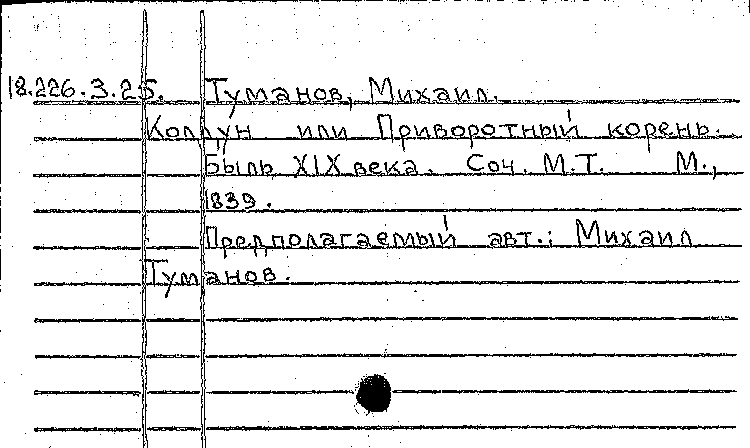 18.226.3.25. Туманов, Михаил.
Колдун или Приворотный корень.
Быль XIX века. Соч. М.Т. М.,
1839.
Предполагаемый авт.: Михаил
Туманов.